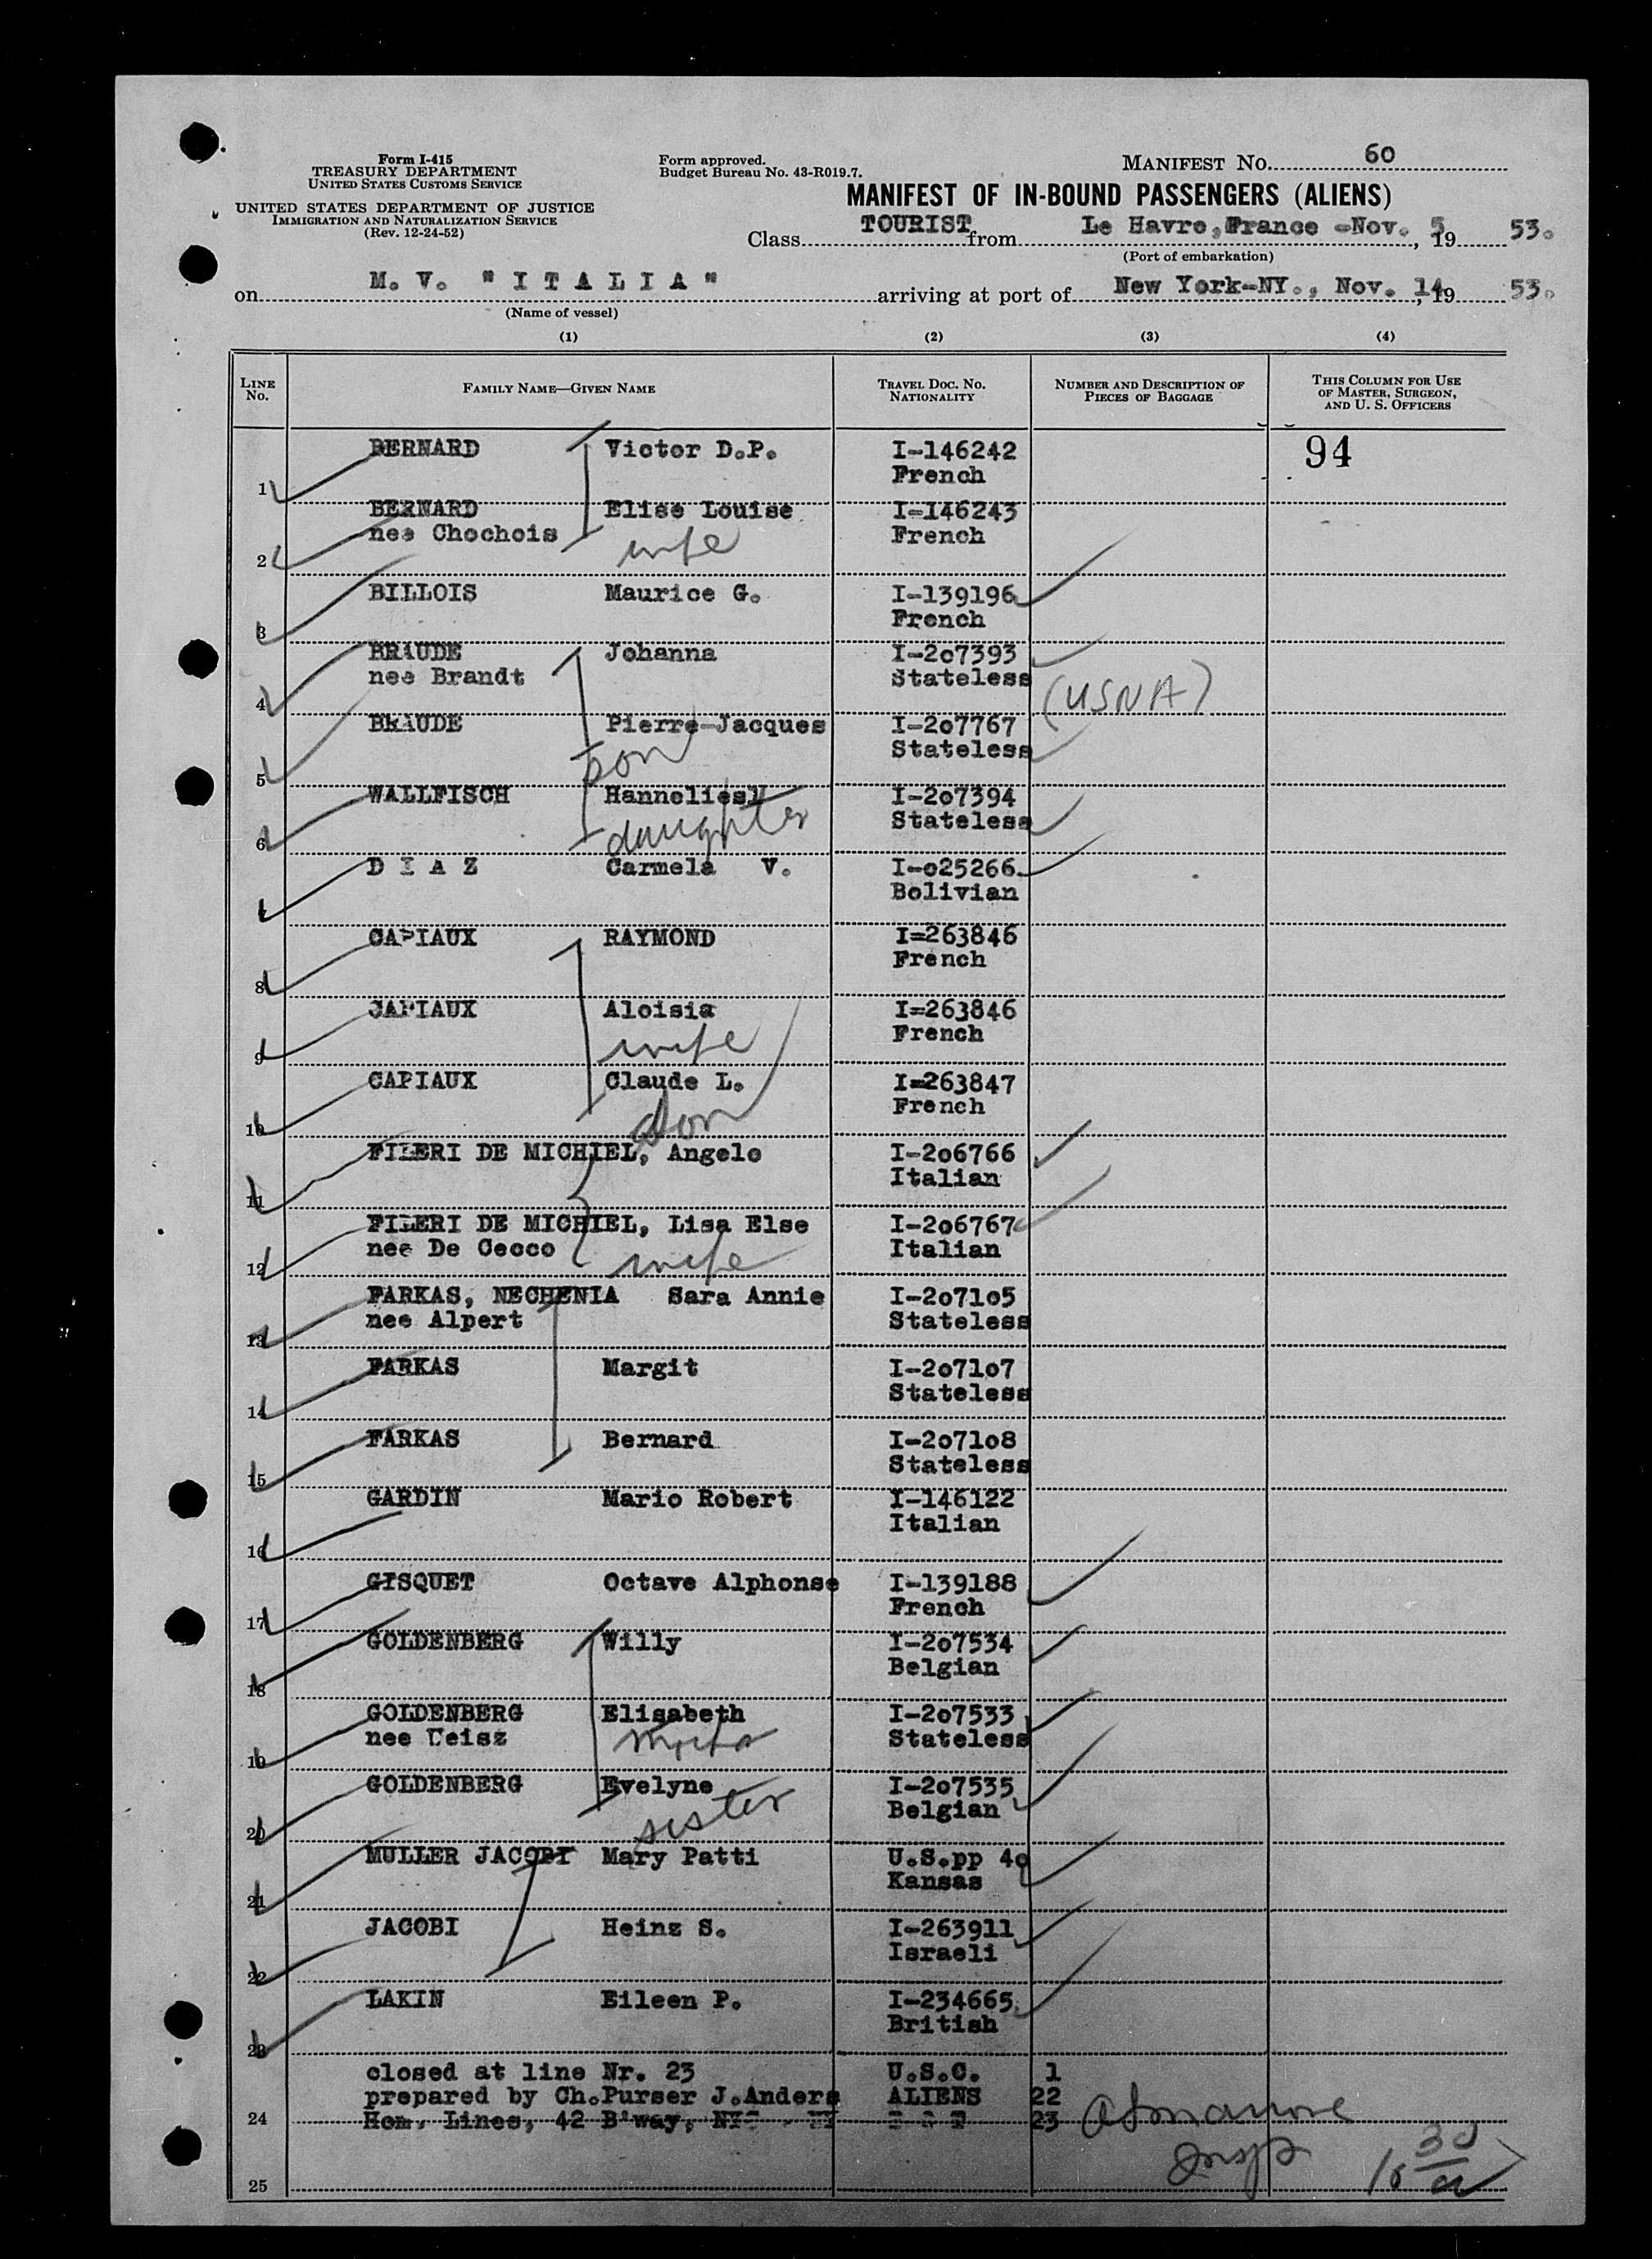 Form I-415
TREASURY DEPARTMENT
UNITED STATES CUSTOMS SERVICE
UNITED STATES DEPARTMENT OF JUSTICE
IMMIGRATION AND NATURALIZATION SERVICE
(Rev. 12-24-52)
Form approved.
Budget Bureau No. 43-R019.7.
MANIFEST NO. 60
MANIFEST OF IN-BOUND PASSENGERS (ALIENS)
Class TOURIST from Le Havre, France -Nov. 5, 19 53.
(Port of embarkation)
on M. V. "I T A L I A" arriving at port of New York-NY., Nov. 14, 19 53.
(Name of vessel)
(1) (2) (3) (4)
LINE NO. FAMILY NAME—GIVEN NAME TRAVEL DOC. NO. NATIONALITY NUMBER AND DESCRIPTION OF PIECES OF BAGGAGE THIS COLUMN FOR USE OF MASTER, SURGEON, AND U. S. OFFICERS
1 BERNARD Victor D.P. I-146242 94
French
2 BERNARD Elise Louise I-146243
nee Chochois wife French
3 BILLOIS Maurice G. I-139196
French
4 BRAUDE Johanna I-207393
nee Brandt Stateless (USNA)
5 BRAUDE Pierre-Jacques I-207767
son Stateless
6 WALLFISCH Hannelies I-207394
daughter Stateless
7 D I A Z Carmela V. I-025266
Bolivian
8 CAPIAUX RAYMOND I=263846
French
9 CAPIAUX Aloisia I=263846
wife French
10 CAPIAUX Claude L. I=263847
son French
11 FILERI DE MICHIEL, Angelo I-206766
Italian
12 FILERI DE MICHIEL, Lisa Else I-206767
nee De Cecco wife Italian
13 FARKAS, NECHENIA Sara Annie I-207105
nee Alpert Stateless
14 FARKAS Margit I-207107
Stateless
15 FARKAS Bernard I-207108
Stateless
16 GARDIN Mario Robert I-146122
Italian
17 GISQUET Octave Alphonse I-139188
French
18 GOLDENBERG Willy I-207534
Belgian
19 GOLDENBERG Elisabeth I-207533
nee Deisz Stateless
20 GOLDENBERG Evelyne I-207535
sister Belgian
21 MULLER JACOBI Mary Patti U.S.pp 40
Kansas
22 JACOBI Heinz S. I-263911
Israeli
23 LAKIN Eileen P. I-234665
British
closed at line Nr. 23 U.S.C. 1
prepared by Ch.Purser J.Anders ALIENS 22
24 Hom. Lines, 42 B'way, 23
Insp
10 30/a
25